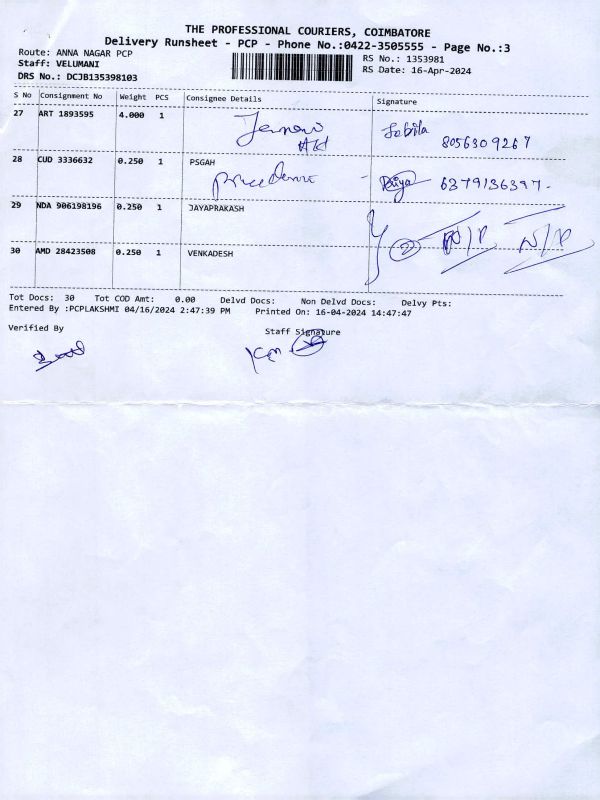 THE PROFESSIONAL COURIERS, COIMBATORE
Delivery Runsheet - PCP - Phone No.:0422-3505555 - Page No.:3
Route: ANNA NAGAR PCP RS No.: 1353981
Staff: VELUMANI RS Date: 16-Apr-2024
DRS No.: DCJB135398103
S No Consignment No Weight PCS Consignee Details Signature
27 ART 1893595 4.000 1 8056309267
28 CUD 3336632 0.250 1 PSGAH
Priya 6379136397.
29 NDA 906198196 0.250 1 JAYAPRAKASH
② N/P N/P
30 AMD 28423508 0.250 1 VENKADESH
Tot Docs: 30 Tot COD Amt: 0.00 Delvd Docs: Non Delvd Docs: Delvy Pts:
Entered By :PCPLAKSHMI 04/16/2024 2:47:39 PM Printed On: 16-04-2024 14:47:47
Verified By Staff Signature